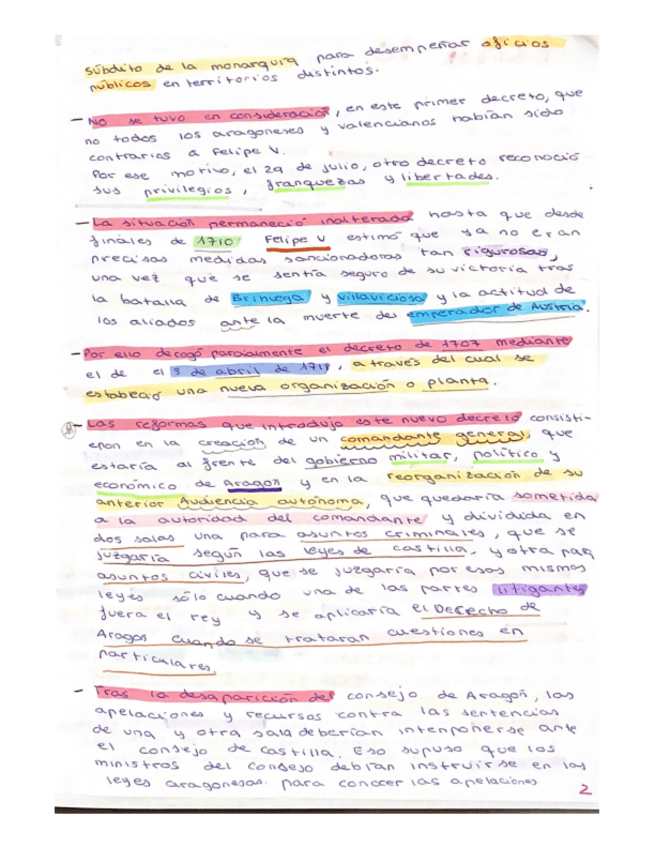 súbdito de la monarquía para desempeñar oficios
públicos en territorios distintos.
- No se tuvo en consideración, en este primer decreto, que
no todos los aragoneses y valencianos habían sido
contrarios a Felipe V.
Por ese motivo, el 29 de julio, otro decreto reconoció
sus privilegios, franquezas y libertades.
- La situación permaneció inalterada hasta que desde
finales de 1710 Felipe V estimó que ya no eran
precisas medidas sancionadoras tan rigurosas,
una vez que se sentía seguro de su victoria tras
la batalla de Brihuega y Villaviciosa y la actitud de
los aliados ante la muerte del emperador de Austria.
- Por ello derogó parcialmente el decreto de 1707 mediante
el de el 3 de abril de 1711, a través del cual se
estableció una nueva organización o planta.
- Las reformas que introdujo este nuevo decreto consisti-
eron en la creación de un comandante general, que
estaría al frente del gobierno militar, político y
económico de Aragón y en la reorganización de su
anterior Audiencia autónoma, que quedaría sometida
a la autoridad del comandante y dividida en
dos salas una para asuntos criminales, que se
juzgaría según las leyes de castilla, y otra para
asuntos civiles, que se juzgaría por esas mismas
leyes sólo cuando una de las partes litigantes
fuera el rey y se aplicaría el Derecho de
Aragón cuando se trataran cuestiones en
particulares
- Tras la desaparición del consejo de Aragón, las
apelaciones y recursos contra las sentencias
de una y otra sala deberían interponerse ante
el consejo de castilla. Eso supuso que los
ministros del consejo debían instruirse en las
leyes aragonesas para conocer las apelaciones
2